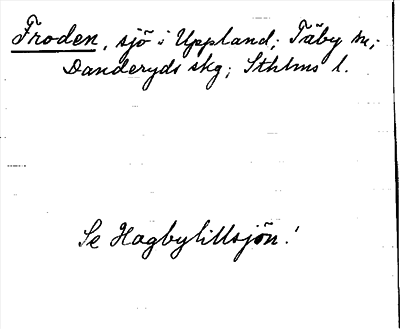 Froden, sjö i Uppland; Täby kn;
Danderyds skg; Sthlms l.
Se Hagbylillsjön!